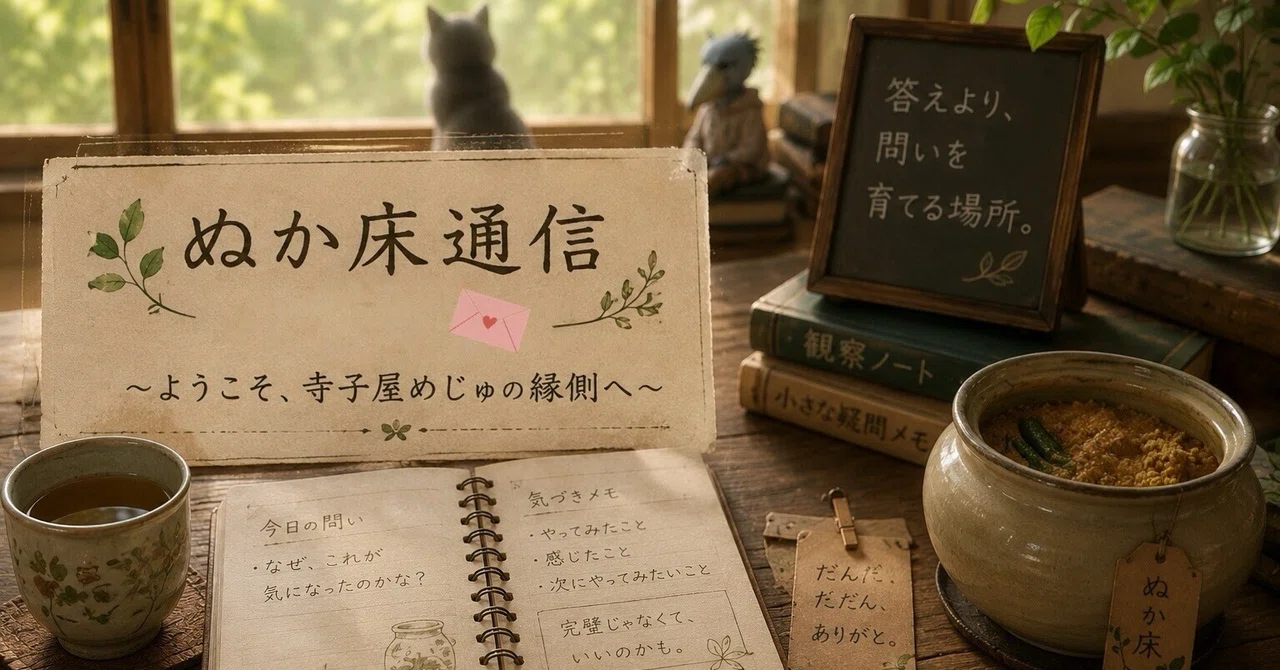 ぬか床通信
～ようこそ、寺子屋めじゅの縁側へ～
答えより、
問いを
育てる場所。
観察ノート
小さな疑問メモ
今日の問い
・なぜ、これが
気になったのかな？
気づきメモ
・やってみたこと
・感じたこと
・次にやってみたいこと
完璧じゃなくて、
いいのかも。
だんだ、
だだん、
ありがと。
ぬか床